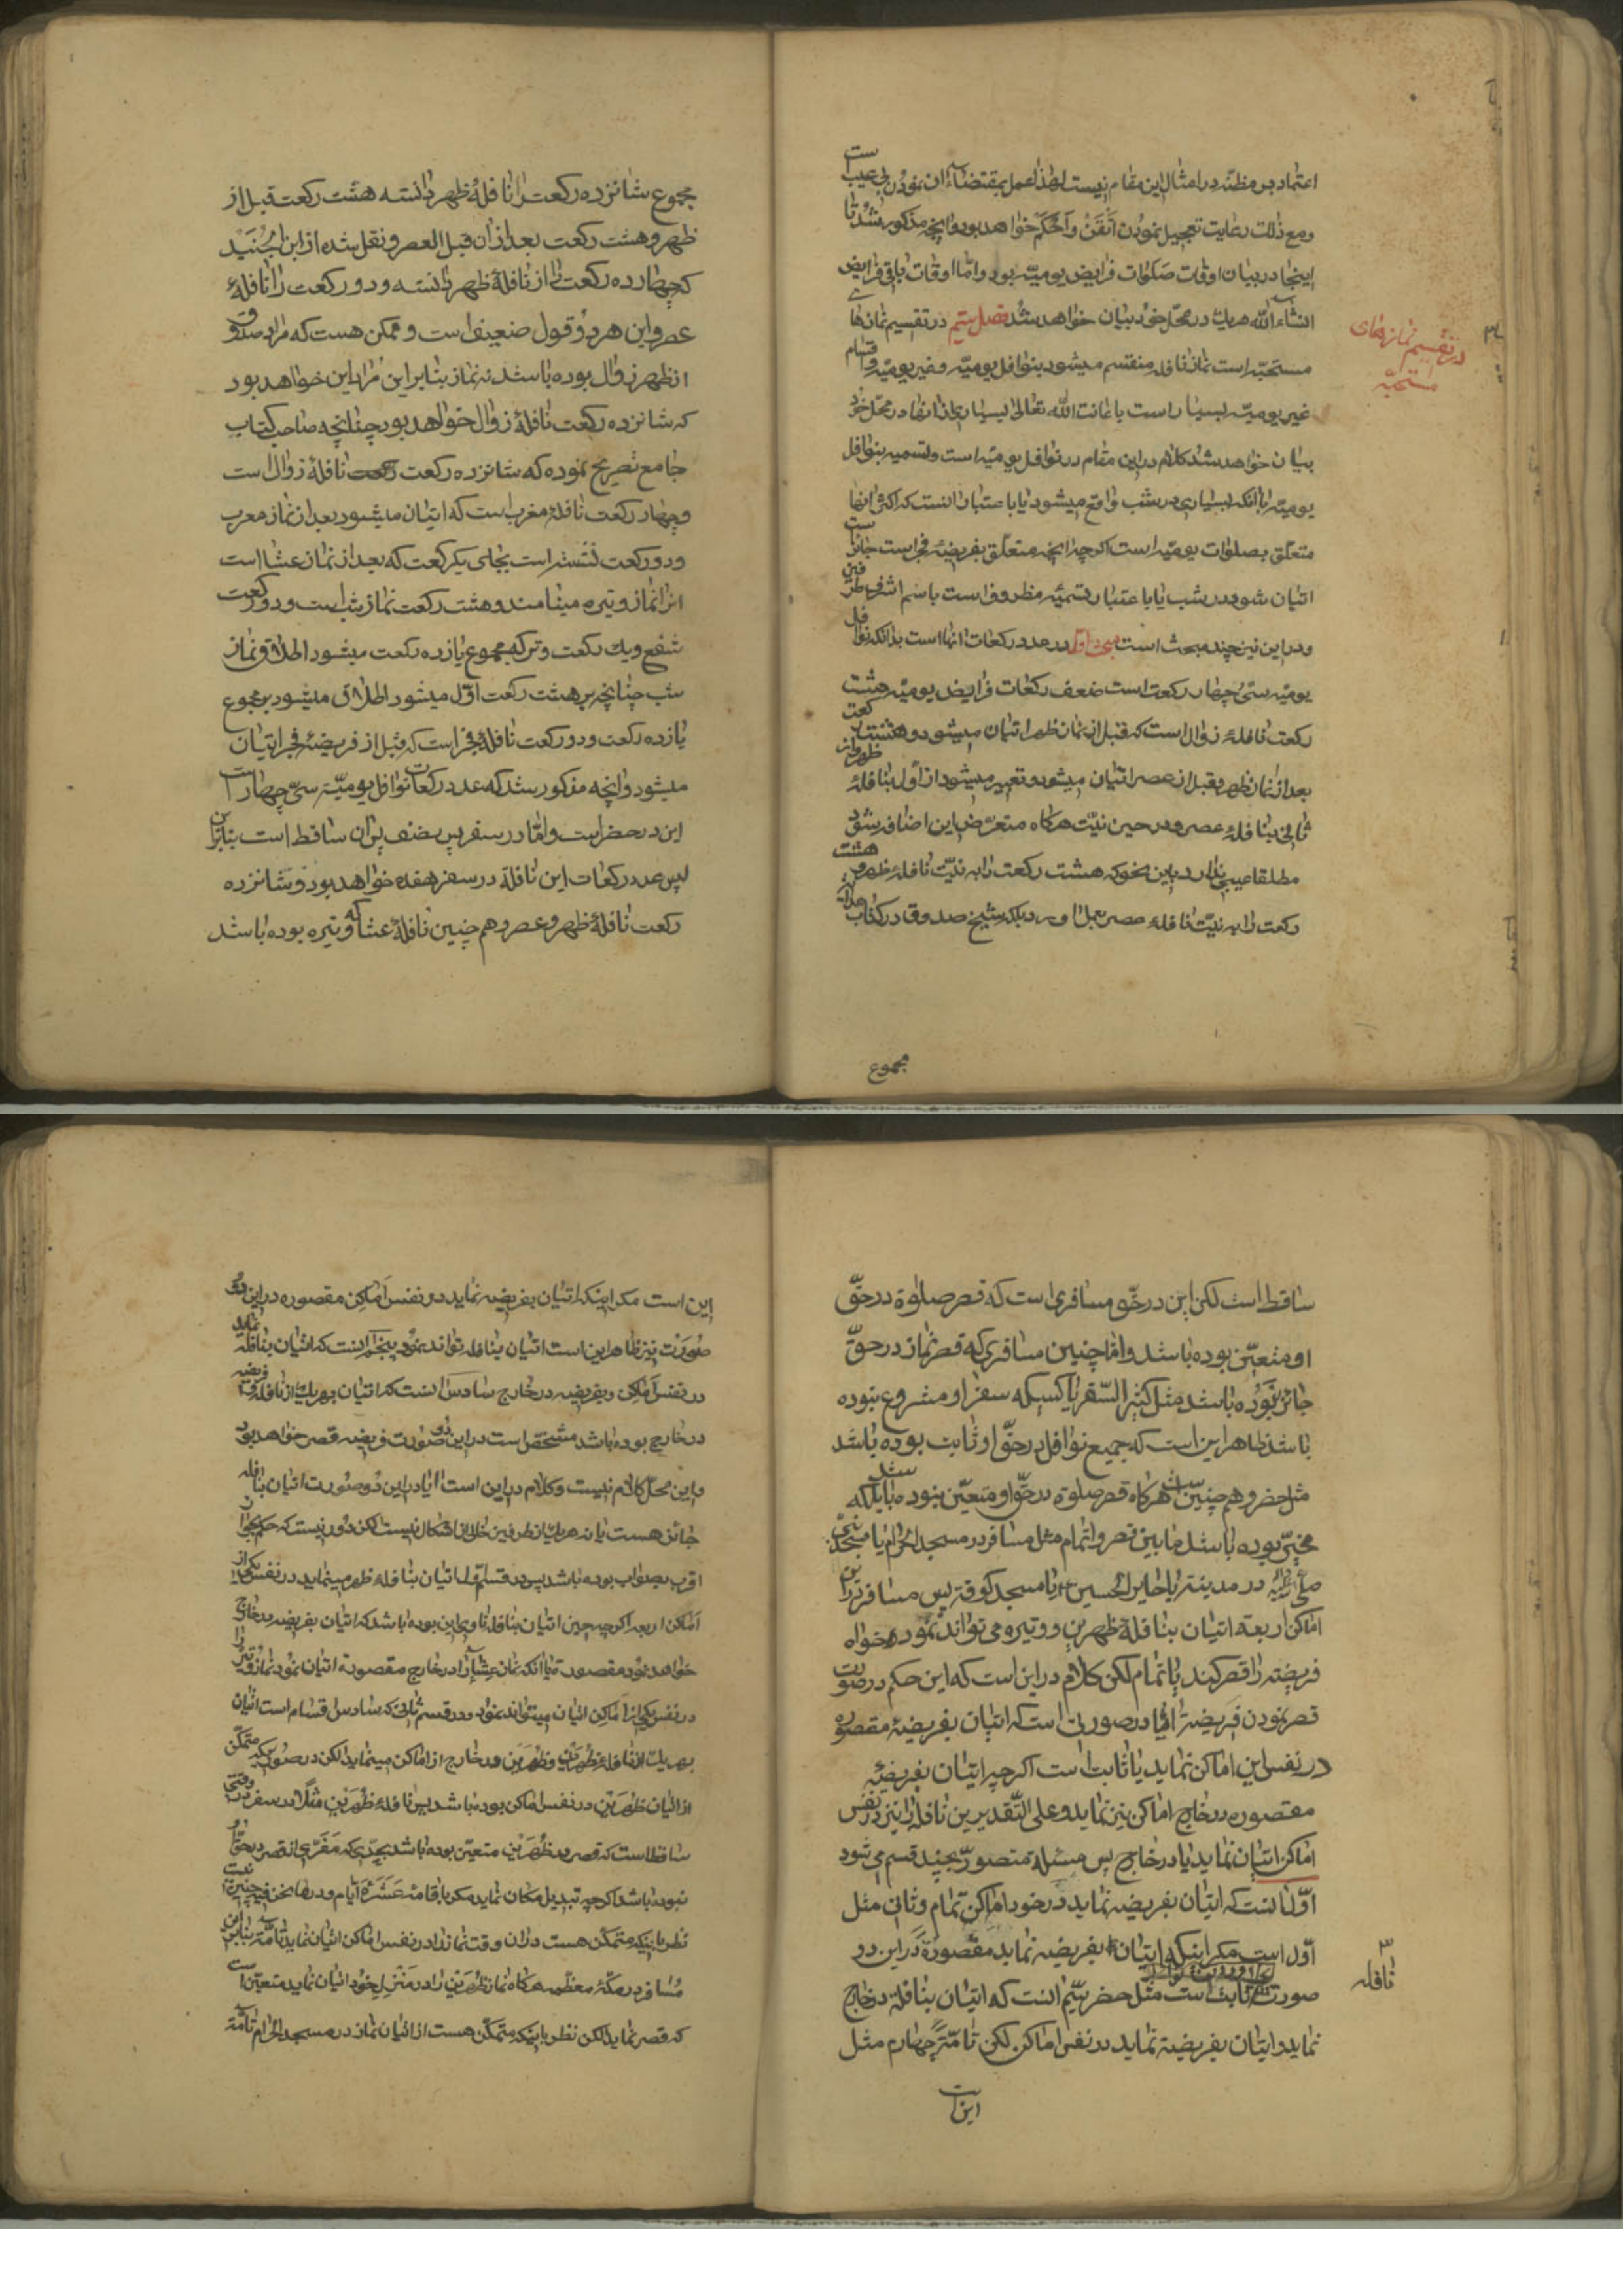 اعتماد بر مظنه در امثال این مقام نیست لهذا عمل بمقتضاء ان نمودن بی عیب است
و مع ذلک رعایت تعجیل نمودن اتقن و احکم خواهد بود و انچه مذکور شد تا
اینجا در بیان اوقات صلوات فرایض یومیه بود و اما اوقات باقی فرایض
انشاء الله هر یک در محل خود بیان خواهد شد فصل سیم در تقسیم نمازهای
مستحبه است نماز نافله منقسم میشود بنوافل یومیه و غیر یومیه و اقسام
غیر یومیه بسیار است باعانت الله تعالی بسیاری از انها در محل خود
بیان خواهد شد کلام در این مقام در نوافل یومیه است و تسمیه بنوافل
یومیه با انکه بسیاری در شب واقع میشود یا باعتبار انست که اکثر انها
متعلق بصلوات یومیه است اکرچه انچه متعلق بفریضه فجر است جائز است
اتیان شود در شب یا باعتبار تسمیه مظروف است باسم اشرف طرفین
و در این نیز چند مبحث است مبحث اول در عدد رکعات انها است بدانکه نوافل
یومیه سی و چهار رکعت است ضعف رکعات فرایض یومیه هشت
رکعت نافله زوال است که قبل از نماز ظهر اتیان میشود و هشت رکعت
بعد از نماز ظهر و قبل از عصر اتیان میشود و تعبیر میشود از اول بنافله ظهر و از
ثانی بنافله عصر و در حین نیت هرکاه متعرض این اضافه نشود
مطلقا عیبی ندارد باین نحو که هشت رکعت را به نیت نافله ظهر و هشت
رکعت را به نیت نافله عصر بعمل اورد بلکه شیخ صدوق در کتاب هدایه
در تقسیم نمازهای
مستحبه
مجموع
مجموع شانزده رکعت را نافلهٔ ظهر دانسته هشت رکعت قبل از
ظهر و هشت رکعت بعد از ان قبل العصر و نقل شده از ابن الجنید
که چهارده رکعت را از نافلهٔ ظهر دانسته و دو رکعت را نافلهٔ
عصر و این هر دو قول ضعیف است و ممکن هست که مراد صدوق
از ظهر زوال بوده باشد نه نماز بنابراین مراد این خواهد بود
که شانزده رکعت نافلهٔ زوال خواهد بود چنانچه صاحب کتاب
جامع تصریح نموده که شانزده رکعت نافلهٔ زوال است
و چهار رکعت نافلهٔ مغرب است که اتیان میشود بعد از نماز مغرب
و دو رکعت نشسته است بجای یکرکعت که بعد از نماز عشا است
انرا نماز وتیره مینامند و هشت رکعت نماز شب است و دو رکعت
شفع و یک رکعت وتر که مجموع یازده رکعت میشود اطلاق نماز
شب چنانچه بر هشت رکعت اول میشود اطلاق میشود بر مجموع
یازده رکعت و دو رکعت نافلهٔ فجر است که قبل از فریضهٔ فجر اتیان
میشود و انچه مذکور شد که عدد رکعات نوافل یومیّه سی چهار است
این در حضر است و امّا در سفر پس نصف بر ان ساقط است بنابراین
پس عدد رکعات این نافلة در سفر هفده خواهد بود و شانزده
رکعت نافلهٔ ظهر و عصر و هم چنین نافلهٔ عشا که وتیره بوده باشد
ساقط است لکن این در حقّ مسافری است که قصر صلوة در حقّ
او متعیّن بوده باشد و امّا چنین مسافری که قصر نماز در حقّ
جائز نبوده باشد مثل کثیر السّفر یا کسیکه سفر او مشروع نبوده
باشد ظاهر این است که جمیع نوافل در حقّ او ثابت بوده باشد
مثل حضر و هم چنین است هرکاه قصر صلوة در حقّ او متعیّن نبوده باشد بلکه
مخیّر بوده باشد مابین قصر و اتمام مثل مسافر در مسجد الحرام یا مسجد نبی
صلی الله علیه در مدینه یا حایر الحسین یا مسجد کوفه پس مسافر در این
اماکن اربعه اتیان بنافلهٔ ظهرین و وتیره می تواند نمود خواه
فریضه را قصر کند یا تمام لکن کلام در این است که این حکم در صورت
قصر نمودن فریضة ایا در صورتی است که اتیان بفریضهٔ مقصوره
در نفس این اماکن نماید یا ثابت است اکرچه اتیان بفریضهٔ
مقصوره در خارج اماکن نیز نماید و علی التّقدیرین نافله را نیز در نفس
اماکن اتیان نماید یا در خارج پس مسئله متصور بچند قسم می شود
اوّل انست که اتیان بفریضه نماید در خود اماکن تمام و ثانی مثل
اوّل است مکر اینکه اتیان بفریضه نماید مقصورة در این دو
صورت نافله ثابت است مثل حضر سیّم انست که اتیان بنافلة در خارج
نماید و اتیان بفریضة نماید در نفس اماکن لکن تامّة چهارم مثل
نافله
این است
این است مکر اینکه اتیان بفریضه نماید در نفس اماکن مقصوره در این دو
صورت نیز ظاهر این است اتیان بنافله تواند نمود پنجم انست که اتیان بنافله نماید
در نفس اماکن و بفریضه در خارج سادس انست که اتیان بهر یک از نافله و فریضه
در خارج بوده باشد مشخص است در این دو صورت فریضه قصر خواهد بود
و این محل کلام نیست و کلام در این است ایا در این دو صورت اتیان بنافله
جائز هست یا نه هر یک از طرفین خالی از اشکال نیست لکن دور نیست که حکم بجواز
اقرب بصواب بوده باشد پس در قسم اول اتیان بنافله ظهر مینماید در نفس یکی از
اماکن اربعه اکرچه حین اتیان بنافله ناوی این بوده باشد که اتیان بفریضه در خارج
خواهد نمود مقصوره یا انکه نماز عشا را در خارج مقصورة اتیان نمود نماز وتیره را
در نفس یکی از اماکن اتیان میتواند نمود و در قسم ثانی که سادس اقسام است اتیان
بهر یک از نافلهٔ ظهرین و ظهرین در خارج از اماکن مینماید لکن در صورتیکه متمکن
از اتیان ظهرین در نفس اماکن بوده باشد پس نافلهٔ ظهرین مثلا در سفر وقتی
ساقط است که قصر در ظهرین متعین بوده باشد بحدّی که مفرّی از قصر در حق او
نبوده باشد اکرچه تبدیل مکان نماید مکر باقامهٔ عشرة ایام و در ما نحن فیه چنین نیست
نظر باینکه متمکن هست در ان وقت نماز را در نفس اماکن اتیان نماید تامّة بنابراین
مسافر در مکهٔ معظمه هرکاه نماز ظهرین را در منزل خود اتیان نماید متعیّن است
که قصر نماید لکن نظر باینکه متمکن هست از اتیان نماز در مسجد الحرام تامّة